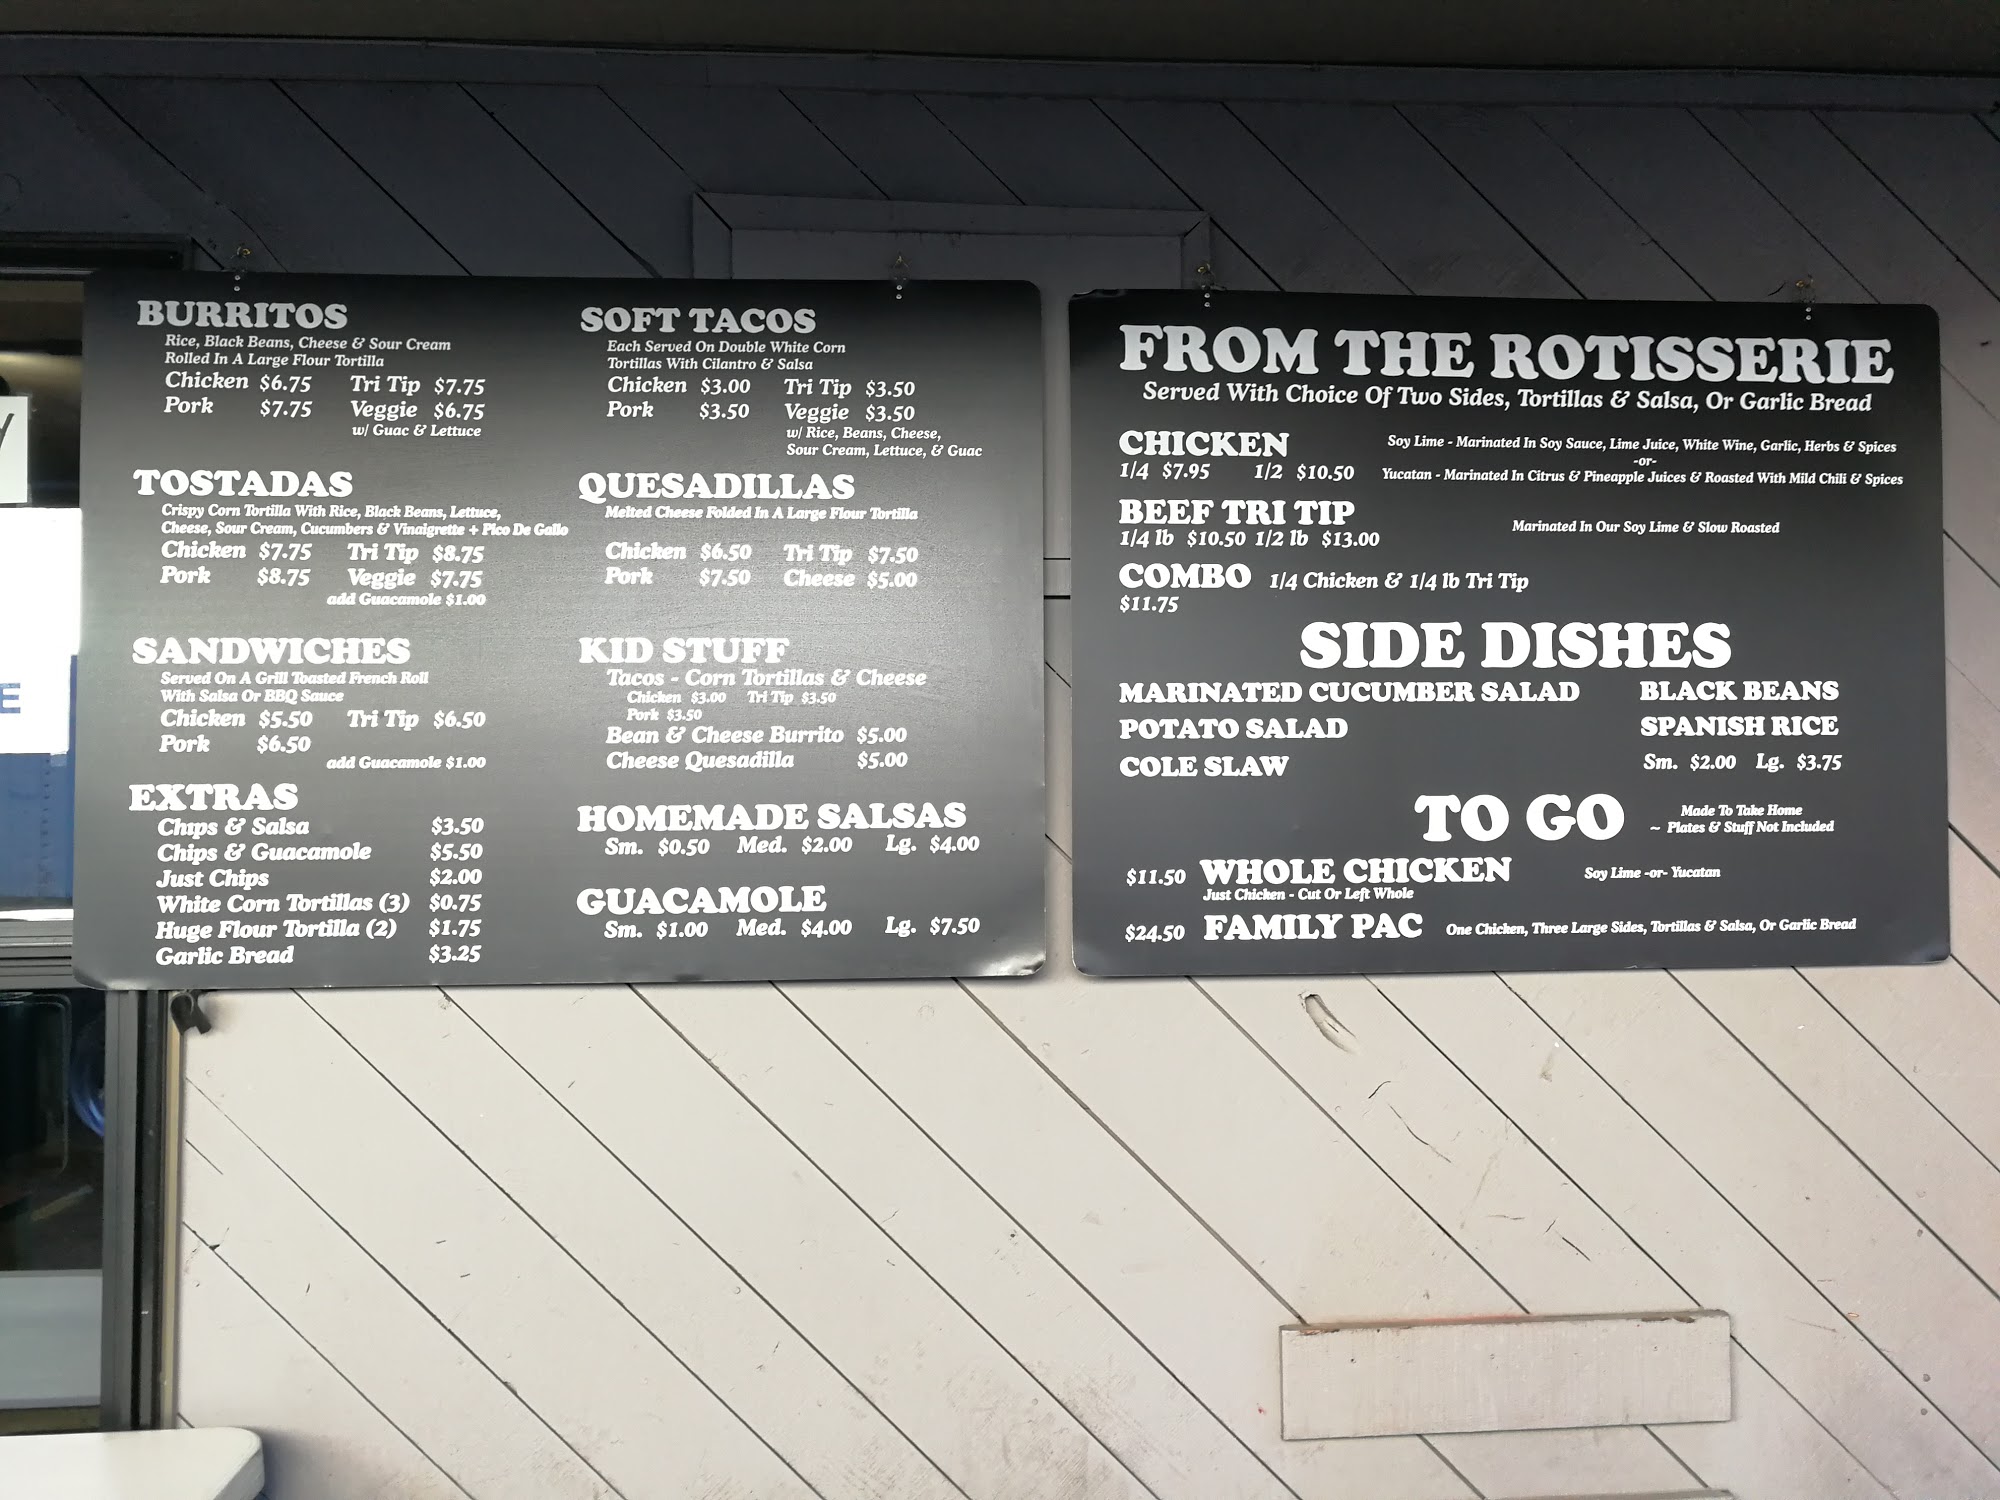 BURRITOS
Rice, Black Beans, Cheese & Sour Cream
Rolled In A Large Flour Tortilla
Chicken $6.75 Tri Tip $7.75
Pork $7.75 Veggie $6.75
w/ Guac & Lettuce
TOSTADAS
Crispy Corn Tortilla With Rice, Black Beans, Lettuce,
Cheese, Sour Cream, Cucumbers & Vinaigrette + Pico De Gallo
Chicken $7.75 Tri Tip $8.75
Pork $8.75 Veggie $7.75
add Guacamole $1.00
SANDWICHES
Served On A Grill Toasted French Roll
With Salsa Or BBQ Sauce
Chicken $5.50 Tri Tip $6.50
Pork $6.50
add Guacamole $1.00
EXTRAS
Chips & Salsa $3.50
Chips & Guacamole $5.50
Just Chips $2.00
White Corn Tortillas (3) $0.75
Huge Flour Tortilla (2) $1.75
Garlic Bread $3.25
SOFT TACOS
Each Served On Double White Corn
Tortillas With Cilantro & Salsa
Chicken $3.00 Tri Tip $3.50
Pork $3.50 Veggie $3.50
w/ Rice, Beans, Cheese,
Sour Cream, Lettuce, & Guac
QUESADILLAS
Melted Cheese Folded In A Large Flour Tortilla
Chicken $6.50 Tri Tip $7.50
Pork $7.50 Cheese $5.00
KID STUFF
Tacos - Corn Tortillas & Cheese
Chicken $3.00 Tri Tip $3.50
Pork $3.50
Bean & Cheese Burrito $5.00
Cheese Quesadilla $5.00
HOMEMADE SALSAS
Sm. $0.50 Med. $2.00 Lg. $4.00
GUACAMOLE
Sm. $1.00 Med. $4.00 Lg. $7.50
FROM THE ROTISSERIE
Served With Choice Of Two Sides, Tortillas & Salsa, Or Garlic Bread
CHICKEN
1/4 $7.95 1/2 $10.50
Soy Lime - Marinated In Soy Sauce, Lime Juice, White Wine, Garlic, Herbs & Spices
-or-
Yucatan - Marinated In Citrus & Pineapple Juices & Roasted With Mild Chili & Spices
BEEF TRI TIP
1/4 lb $10.50 1/2 lb $13.00
Marinated In Our Soy Lime & Slow Roasted
COMBO 1/4 Chicken & 1/4 lb Tri Tip
$11.75
SIDE DISHES
MARINATED CUCUMBER SALAD BLACK BEANS
POTATO SALAD SPANISH RICE
COLE SLAW Sm. $2.00 Lg. $3.75
TO GO
Made To Take Home
~ Plates & Stuff Not Included
$11.50 WHOLE CHICKEN Soy Lime -or- Yucatan
Just Chicken - Cut Or Left Whole
$24.50 FAMILY PAC One Chicken, Three Large Sides, Tortillas & Salsa, Or Garlic Bread